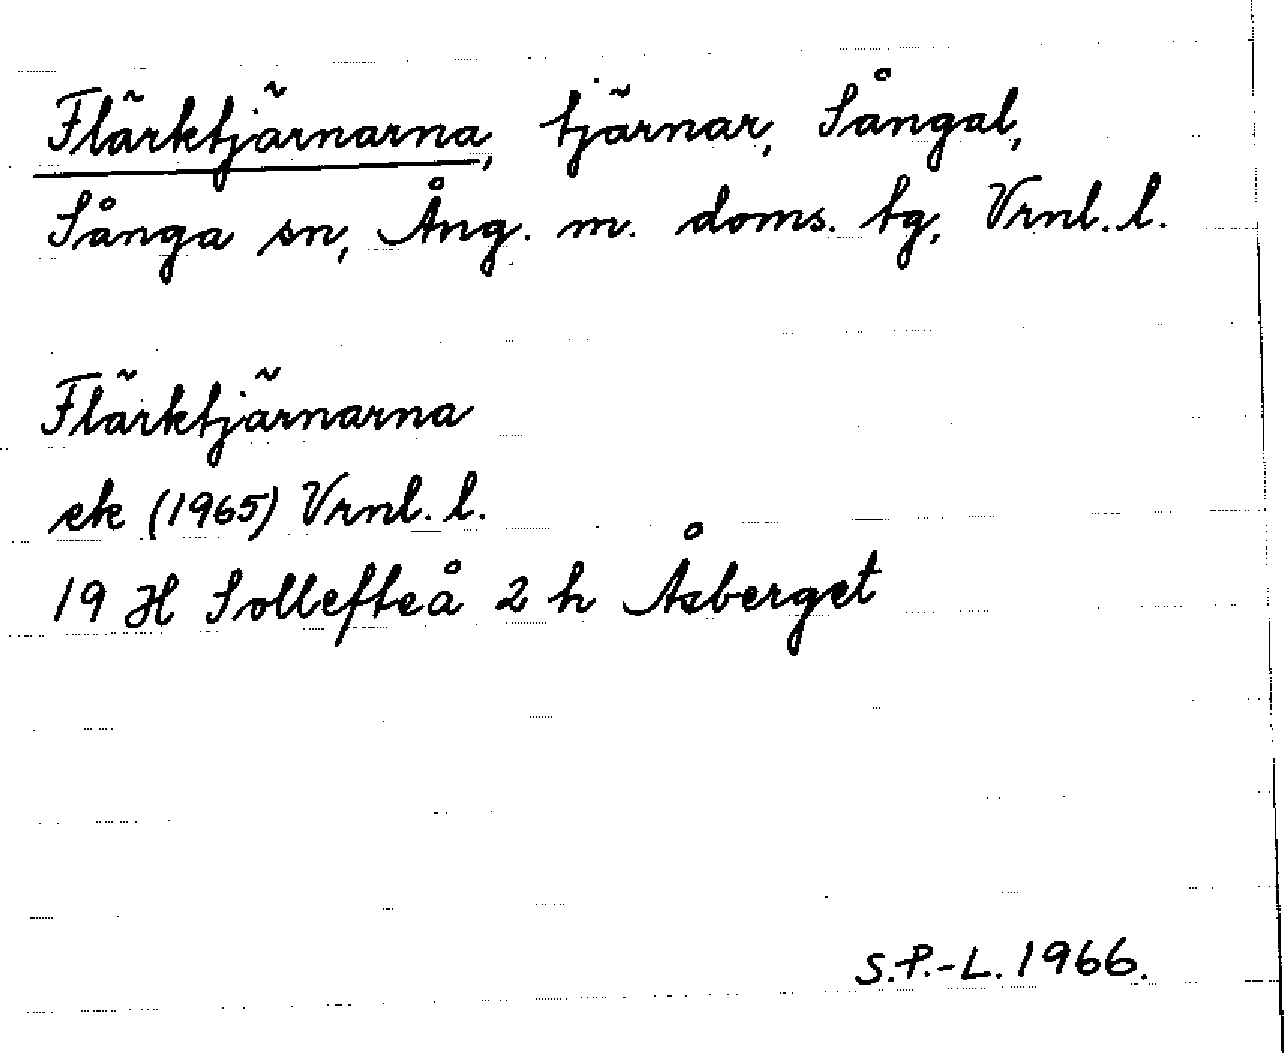 Flärktjärnarna, tjärnar, Sångal,
Sånga sn, Ång. m. doms. tg, Vrnl. l.
Flärktjärnarna
ek (1965) Vrnl. l.
19 H Sollefteå 2 h Åsberget
S.P.-L. 1966.